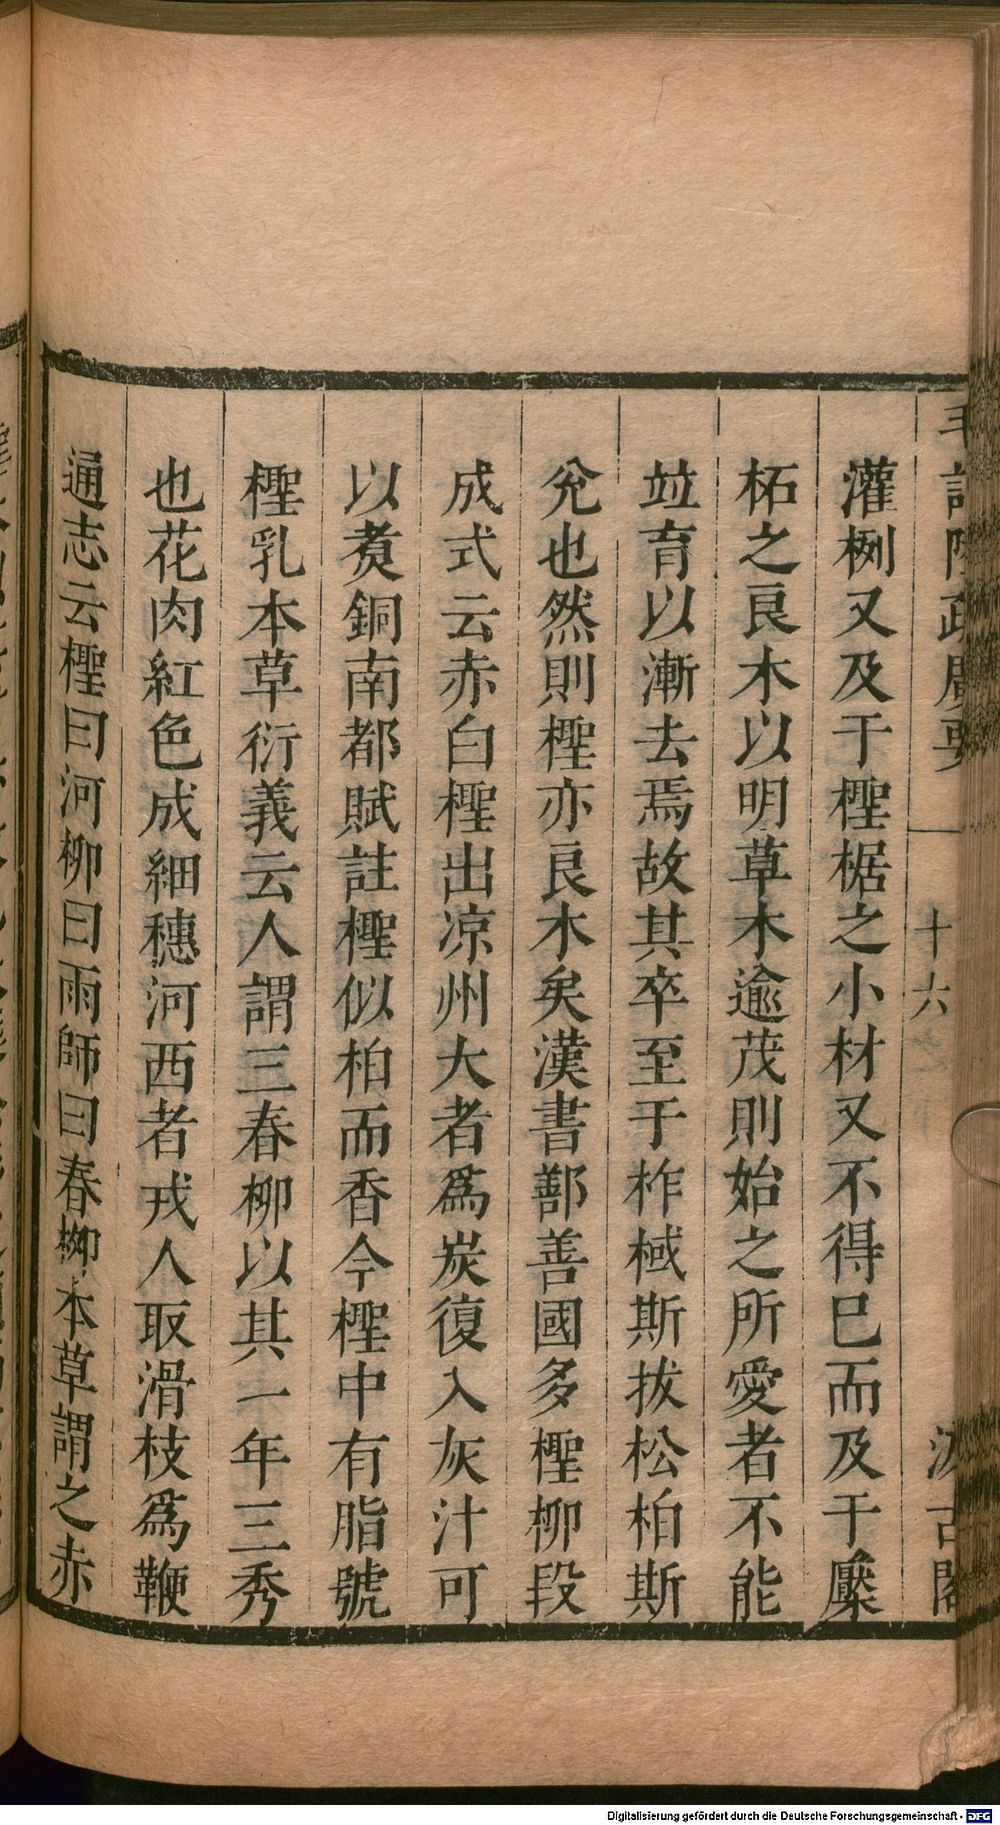 毛詩陸疏廣要
十六
汲古閣
灌栵又及于檉椐之小材又不得已而及于檿
柘之良木以明草木逾茂則始之所愛者不能
竝育以漸去焉故其卒至于柞棫斯拔松柏斯
兊也然則檉亦良木矣漢書鄯善國多檉柳段
成式云赤白檉出凉州大者爲炭復入灰汁可
以煑銅南都賦註檉似柏而香今檉中有脂號
檉乳本草衍義云人謂三春柳以其一年三秀
也花肉紅色成細穗河西者戎人取滑枝爲鞭
通志云檉曰河柳曰雨師曰春桺本草謂之赤
Digitalisierung gefördert durch die Deutsche Forschungsgemeinschaft - DFG